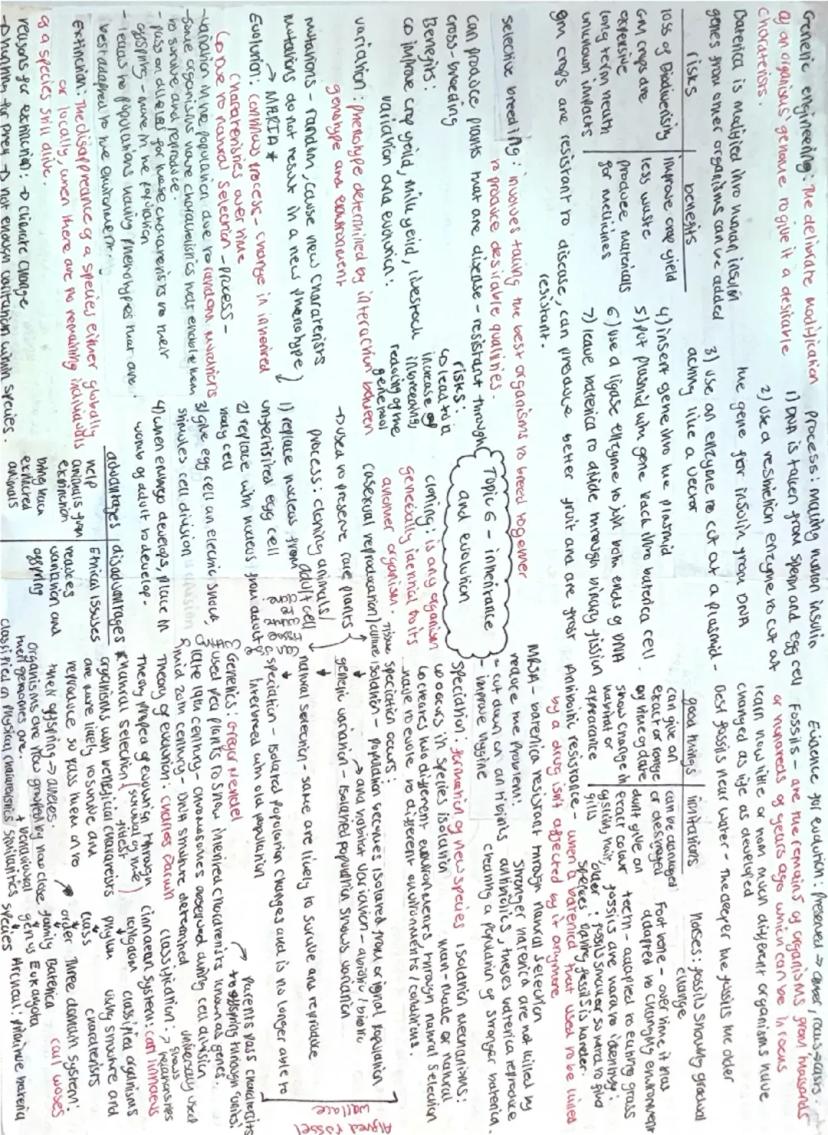 Genetic engineering: The deliberate modification
of an organisms genome to give it a desirable
charateristic.
Bacteria is modified into human insulin
genes from other organisms can be added
risks
benefits
loss of Biodiversity
GM crops are
expensive
long term health
unknown impacts
improve crop yield
less waste
produce materials
for medicines
gm crops are resistant to disease, can produce better fruit and are frost
resistant.
process: making human insulin
1) DNA is taken from sperm and egg cell
2) use a restriction enzyme to cut out
the gene for insulin from DNA
3) use an enzyme to cut out a plasmid -
acting like a vector
4) insert gene into the plasmid
5) put plasmid with gene back into bacteria cell
6) use a ligase enzyme to join both ends of DNA
7) leave bacteria to divide through binary fission
selective breeding: involves taking the best organisms to breed together
to produce desirable qualities.
can produce plants that are disease-resistant through
cross-breeding
Benefits:
to improve crop yeild, milk yeild, livestock
risks:
to lead to a
increase of
inbreeding,
reducing of the
gene pool
variation and evolution:
variation: phenotype determined by interaction between
genotype and environment
mutations - random, cause new charateristics
mutations do not result in a new phenotype)
→ MRSA *
Evolution: continuous process - change in inherited
characteristics over time
↳ due to natural selection - process -
-variation in the population due to random mutations
-some organisms have characteristics that enable them
to survive and reproduce.
- pass on alleles for these characteristics to their
offspring - more in the population
- leads to populations having phenotypes that are
best adapted to the environment.
Extinction: The disappearence of a species either globally
or locally, when there are no remaining individuals
of a species still alive.
reasons for extinction: → climate change
→ hunting for prey → not enough variation within species.
Topic 6 - inheritance
and evolution
cloning: is any organism
genetically identical to its
another organism.
(asexual reproduction)
→ used to preserve rare plants
process: cloning animals/
adult cell
1) replace nucleus from
unfertilised egg cell
2) replace with nucleus from adult
body cell
3) give egg cell an electric shock,
stimules cell division
4) when embryo develops, place in
womb of adult to develop.
advantages
disadvantages
help
animals from
extinction
bring back
extincted
animals
Ethical issues
reduces
variation and
offspring
Evidence for evolution: Preserved → amber, rocks
Fossils - are the remains of organisms from thousands
or hundreds of years ago which can be in rocks
learn how little or how much different organisms have
changed as life as developed
Best fossils near water - the deeper the fossils the older
good things
limitations
can give an
exact or range
of time of date
show change in
habitat or
appearance
can be damaged
or destroyed
dont give an
exact colour
of skin, hair,
gills
horses: fossils showing gradual
change
Foot bone - over time it has
adapted to changing environment
teeth - adapted to eating grass
fossils are hard to identify:
older: fossils smaller so hard to find
species having fossils is harder.
Antibiotic resistance - when a bacteria that used to be killed
by a drug isn't affected by it anymore
MRSA - bacteria resistant through natural selection
reduce the problem:
- cut down on antibiotics
- improve hygiene
stronger bacteria are not killed by
antibiotics, theses bacteria reproduce
creating a population of stronger bacteria.
Speciation: formation of new species
↳ occurs in species isolation
↳ creates two different environments, through natural selection
have to evolve to different environments/conditions.
Isolation mechanisms:
man-made or natural
speciation occurs:
isolation - population becomes isolated from original population
→ and habitat variation - abiotic/biotic
genetic variation - isolated population shows variation
natural selection - some are likely to survive and reproduce
speciation - isolated population changes and is no longer able to
interbreed with old population
Alfred Russel
wallace
Genetics: Gregor Mendel
used pea plants to show inherited characteristics known as genes.
late 19th century - chromosomes observed during cell division
mid 20th century - DNA structure determined
→ parents pass characteristics
to offspring through 'units'
Theory of evolution: Charles Darwin
theory helped of evolution through
natural selection (survival of the
fittest)
organisms with beneficial characteristics
are more likely to survive and
reproduce so pass them on to
their offspring → alleles.
organisms are now grouped by how close
their genomes are.
classified on physical characteristics similarities
classification: → shows
relationships
universally used
Linnaean system: Carl Linnaeus
kingdom
phylum
class
order
family
genus
species
classified organisms
using structure and
characteristics
Three domain system:
Carl Woses
Bacteria
Eukaryota
Archaea: primitive bacteria